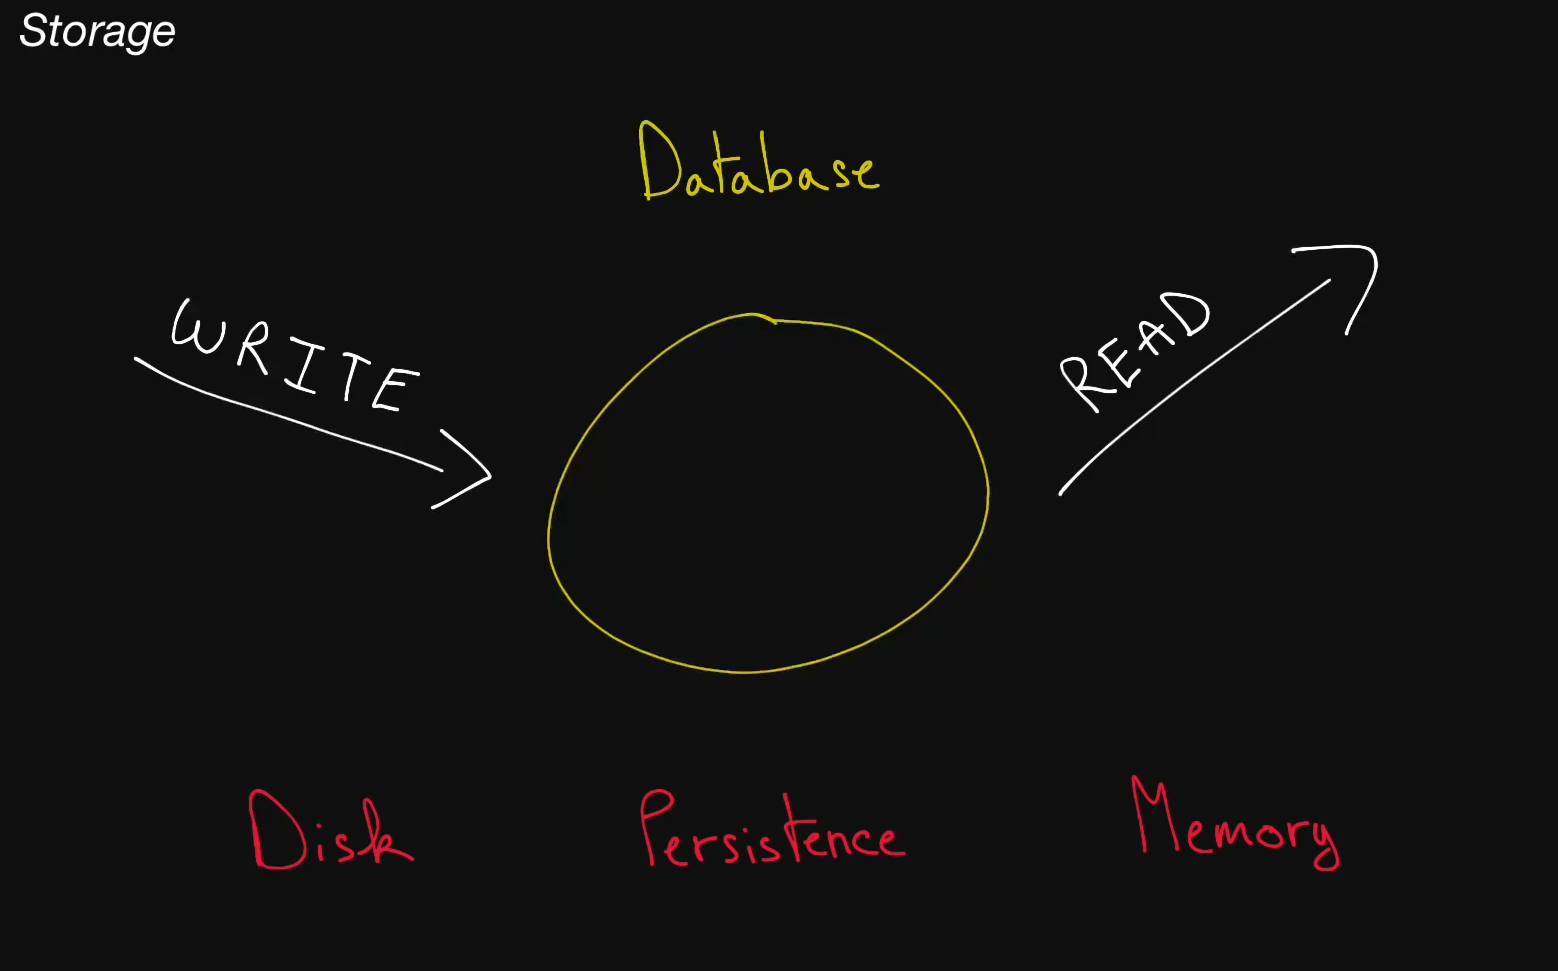 Storage
Database
WRITE
READ
Disk Persistence Memory